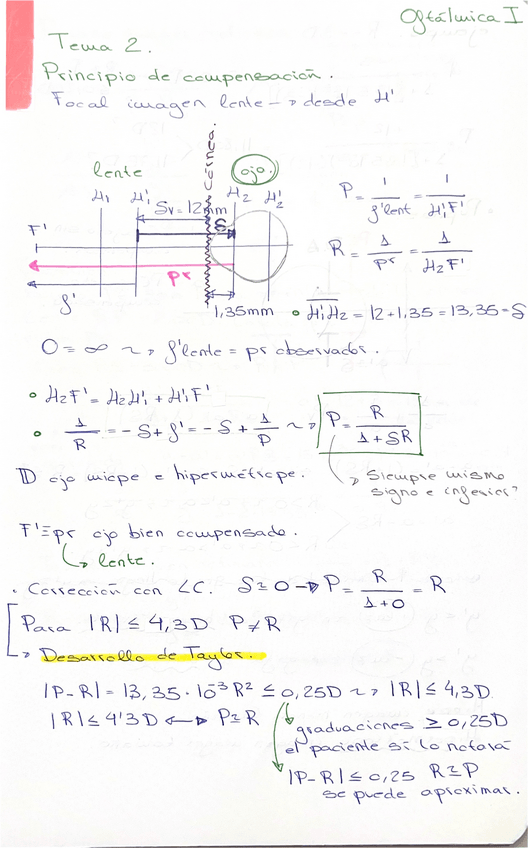 Oftálmica I
Tema 2.
Principio de compensación.
Focal imagen lente → desde H'
lente
Córnea.
ojo.
H₁ H'₁ Sv = 12mm H₂ H'₂
F' S
pr
f' 1,35mm
P = 1/f'lent = 1/H'₁F'
R = 1/pr = 1/H₂F'
• H'₁H₂ = 12 + 1,35 = 13,35 = S
O = ∞ ~> f'lente = pr observador.
• H₂F' = H₂H'₁ + H'₁F'
• 1/R = -S + f' = -S + 1/P ~> P = R/(1+SR)
ojo miope e hipermétrope.
↳ Siempre mismo
signo e inferior?
F' ≡ pr ojo bien compensado.
↳ lente.
• Corrección con LC. S ≃ 0 → P = R/(1+0) = R
Para |R| ≤ 4,3D P ≠ R
↳ Desarrollo de Taylor.
|P-R| = 13,35·10⁻³R² ≤ 0,25D ~> |R| ≤ 4,3D
|R| ≤ 4'3D ↔ P ≃ R
graduaciones ≥ 0,25D
el paciente sí lo notará
|P-R| ≤ 0,25 R ≃ P
se puede aproximar.